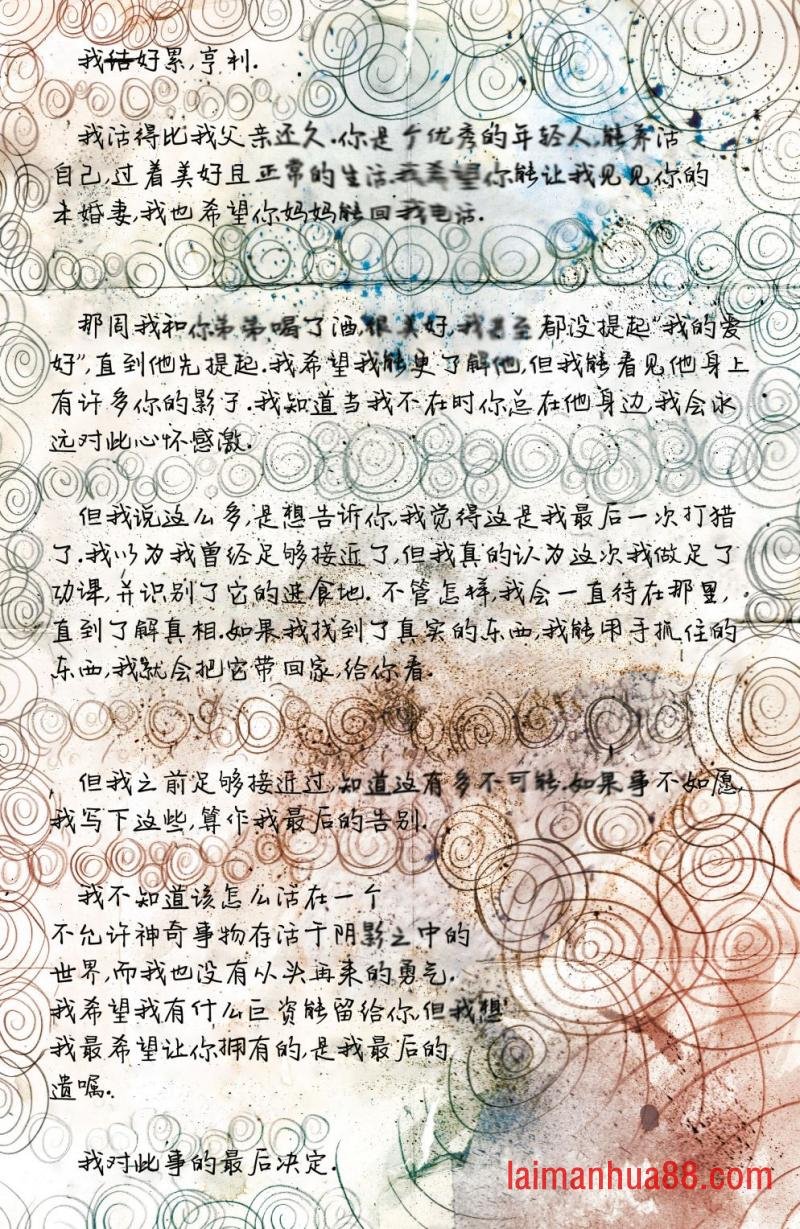 我结好累,亨利.
我活得比我父亲还久.你是个优秀的年轻人,能养活
自己,过着美好且正常的生活.我希望你能让我见见你的
未婚妻,我也希望你妈妈能回我电话.
那周我和你弟弟喝了酒,很美好,我甚至都没提起“我的爱
好”,直到他先提起.我希望我能更了解他,但我能看见他身上
有许多你的影子.我知道当我不在时你总在他身边,我会永
远对此心怀感激.
但我说这么多,是想告诉你,我觉得这是我最后一次打猎
了.我以为我曾经足够接近了,但我真的认为这次我做足了
功课,并识别了它的进食地.不管怎样,我会一直待在那里,
直到了解真相.如果我找到了真实的东西,我能用手抓住的
东西,我就会把它带回家,给你看.
但我之前足够接近过,知道这有多不可能.如果事不如愿,
我写下这些,算作我最后的告别.
我不知道该怎么活在一个
不允许神奇事物存活于阴影之中的
世界,而我也没有从头再来的勇气.
我希望我有什么巨资能留给你,但我想
我最希望让你拥有的,是我最后的
遗嘱.
我对此事的最后决定.
laimanhua88.com